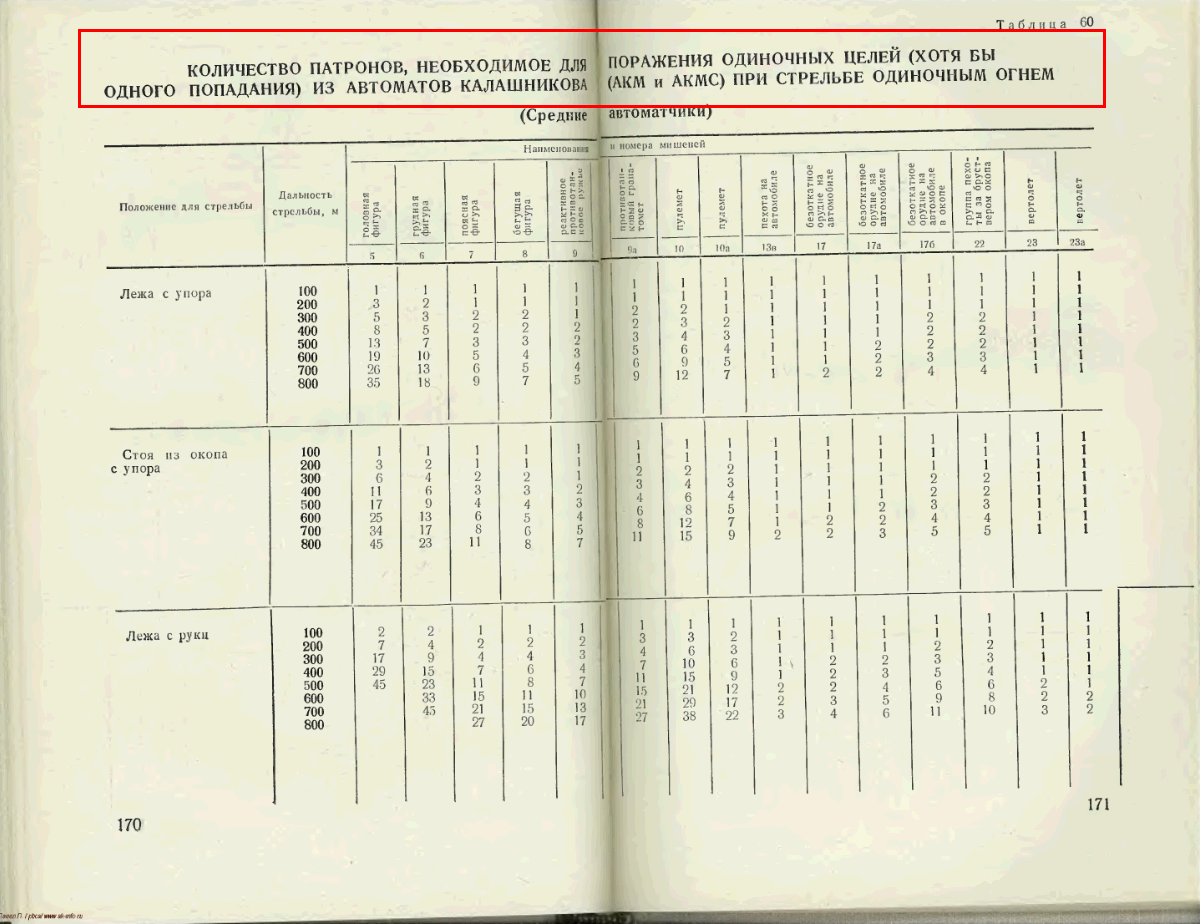 Таблица 60
КОЛИЧЕСТВО ПАТРОНОВ, НЕОБХОДИМОЕ ДЛЯ ПОРАЖЕНИЯ ОДИНОЧНЫХ ЦЕЛЕЙ (ХОТЯ БЫ
ОДНОГО ПОПАДАНИЯ) ИЗ АВТОМАТОВ КАЛАШНИКОВА (АКМ и АКМС) ПРИ СТРЕЛЬБЕ ОДИНОЧНЫМ ОГНЕМ
(Средние автоматчики)
Положение для стрельбы
Дальность
стрельбы, м
Наименования и номера мишеней
головная
фигура
грудная
фигура
поясная
фигура
бегущая
фигура
реактивное
противотан-
ковое ружье
противотан-
ковый грана-
томет
пулемет
пулемет
пехота на
автомобиле
безоткатное
орудие на
автомобиле
безоткатное
орудие на
автомобиле
безоткатное
орудие на
автомобиле
в окопе
группа пехо-
ты за бруст-
вером окопа
вертолет
вертолет
5 6 7 8 9 9а 10 10а 13в 17 17а 17б 22 23 23а
Лежа с упора
100 1 1 1 1 1 1 1 1 1 1 1 1 1 1 1
200 3 2 1 1 1 1 1 1 1 1 1 1 1 1 1
300 5 3 2 2 1 2 2 1 1 1 1 1 1 1 1
400 8 5 2 2 2 2 3 2 1 1 1 2 2 1 1
500 13 7 3 3 2 3 4 3 1 1 1 2 2 1 1
600 19 10 5 4 3 5 6 4 1 1 2 2 2 1 1
700 26 13 6 5 4 6 9 5 1 1 2 3 3 1 1
800 35 18 9 7 5 9 12 7 1 2 2 4 4 1 1
Стоя из окопа
с упора
100 1 1 1 1 1 1 1 1 1 1 1 1 1 1 1
200 3 2 1 1 1 1 1 1 1 1 1 1 1 1 1
300 6 4 2 2 1 2 2 2 1 1 1 1 1 1 1
400 11 6 3 3 2 3 4 3 1 1 1 2 2 1 1
500 17 9 4 4 3 4 6 4 1 1 1 2 2 1 1
600 25 13 6 5 4 6 8 5 1 1 2 3 3 1 1
700 34 17 8 6 5 8 12 7 1 2 2 4 4 1 1
800 45 23 11 8 7 11 15 9 2 2 3 5 5 1 1
Лежа с руки
100 2 2 1 1 1 1 1 1 1 1 1 1 1 1 1
200 7 4 2 2 2 3 3 2 1 1 1 1 1 1 1
300 17 9 4 4 3 4 6 3 1 1 1 2 2 1 1
400 29 15 7 6 4 7 10 6 1 2 2 3 3 1 1
500 45 23 11 8 7 11 15 9 1 2 3 5 4 1 1
600 33 15 11 10 15 21 12 2 2 4 6 6 2 1
700 45 21 15 13 21 29 17 2 3 5 9 8 2 2
800 27 20 17 27 38 22 3 4 6 11 10 3 2
170
171